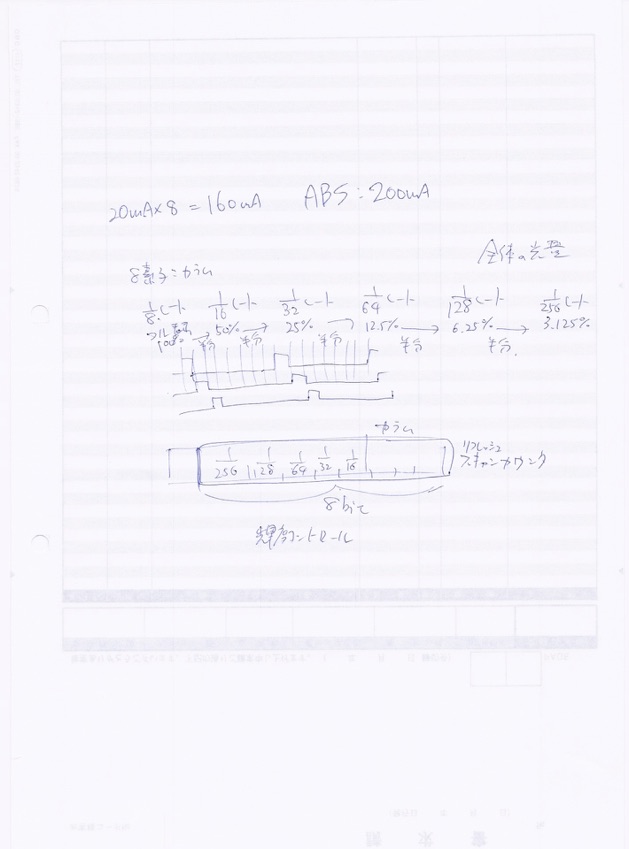 20mA×8 = 160mA ABS:200mA
全体の光量
8素子=カラム
1/8レート 1/16レート 1/32レート 1/64レート 1/128レート 1/256レート
100% → 50% → 25% → 12.5% → 6.25% → 3.125%
半分 半分 半分 半分 半分
カラム
1/256 1/128 1/64 1/32 1/16
リフレッシュ
スキャンカウンタ
8bit
輝度コントロール